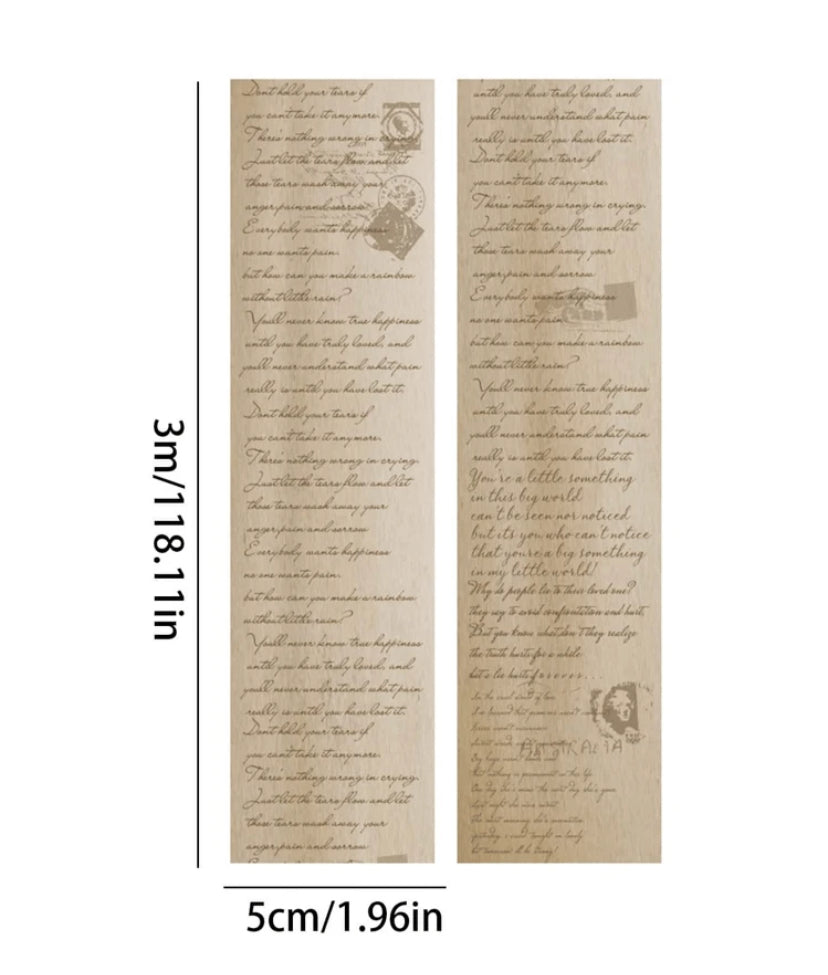 Dont hold your tears if
you cant take it anymore.
There's nothing wrong in crying.
Just let the tears flow and let
those tears wash away your
anger, pain and sorrow
Everybody wants happiness
no one wants pain.
but how can you make a rainbow
without little rain?
Youll never know true happiness
until you have truly loved, and
youll never understand what pain
really is until you have lost it.
Dont hold your tears if
you cant take it anymore.
There's nothing wrong in crying.
Just let the tears flow and let
those tears wash away your
anger, pain and sorrow
Everybody wants happiness
no one wants pain.
but how can you make a rainbow
without little rain?
Youll never know true happiness
until you have truly loved, and
youll never understand what pain
really is until you have lost it.
Dont hold your tears if
you cant take it anymore.
There's nothing wrong in crying.
Just let the tears flow and let
those tears wash away your
anger, pain and sorrow
until you have truly loved, and
youll never understand what pain
really is until you have lost it.
Dont hold your tears if
you cant take it anymore.
There's nothing wrong in crying.
Just let the tears flow and let
those tears wash away your
anger, pain and sorrow
Everybody wants happiness
no one wants pain.
but how can you make a rainbow
without little rain?
Youll never know true happiness
until you have truly loved, and
youll never understand what pain
really is until you have lost it.
You're a little something
in this big world
can't be seen nor noticed
but its you who can't notice
that youre a big something
in my little world!
Why do people lie to their loved one?
they say to avoid confrontation and hurt.
But you know what don't they realize
the truth hurts for a while
but a lie hurts forever...
AUSTRALIA
that nothing is permanent in this life
One day she's mine the next day she's gone
3m/118.11in
5cm/1.96in